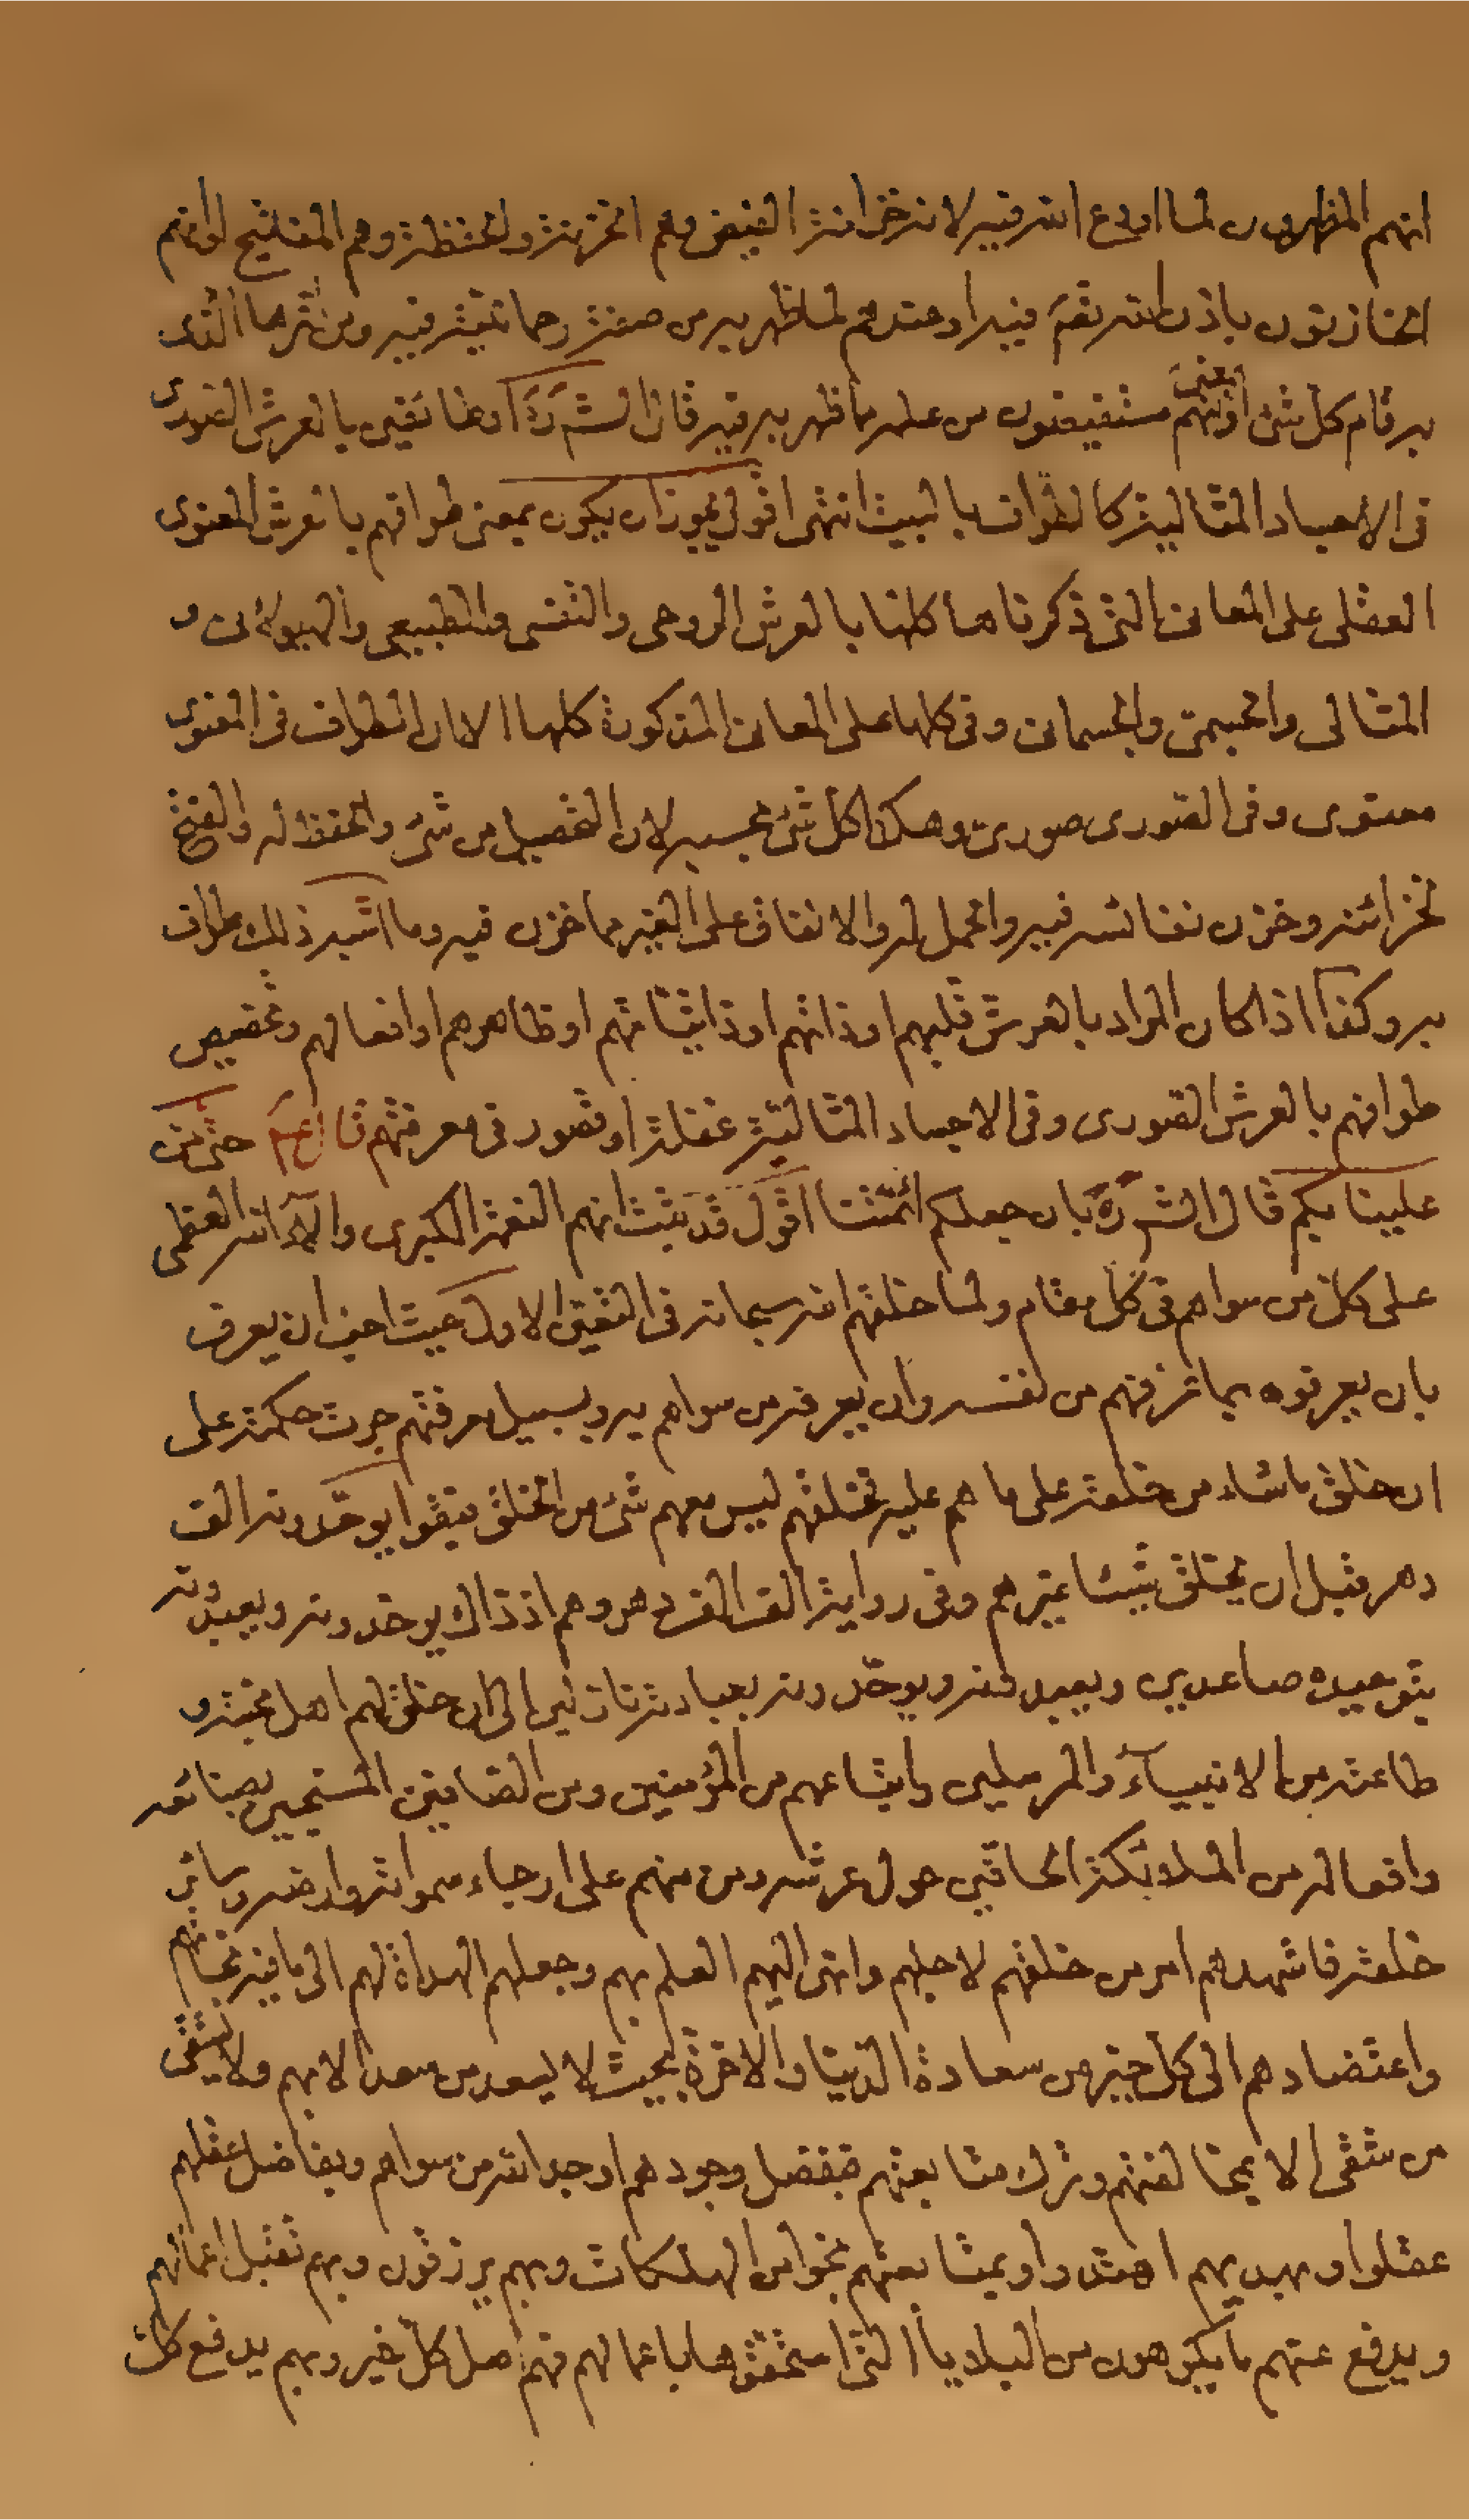 انهم المظهرون لما اودع الله فيه لانه خزانة الفيض وهم الخزنة والحفظة وهم المفاتيح او انهم
الخازنون باذن الله تعم فيه او عنده لما ظهر به من صفة رحمانيته فيه ومن اثرها الذى
به قام كل شئ او انهم بمعنى مستفيضون من علمه ما ظهر به فيه قال الش ره او طائفين بالعرش الصورى
فى الاجساد المثالية كالطواف بالبيت انتهى اقول يجوز ان يكون بمعنى طوافهم بالعرش المعنوى
العقلى على المعانى التى ذكرناها كلها بالعرش الروحى والنفسى والطبيعى والهيولائى و
المثالى والجسمى والجسمانى وفى كلها على المعانى المذكورة كلها الا ان الطواف فى المعنوى
معنوى وفى الصورى صورى وهكذا كل شئ بحسبه لان التحصيل من شئ والحفظ له والفتح
لخزائنه وخزن نفائسه فيه والحمل له والانفاق على الغير مما خزن فيه وما اشبه ذلك طواف
به وكذا اذا كان المراد بالعرش قلبهم او ذاتهم او ذاتياتهم او ظاهرهم او افعالهم وتخصيص
طوافهم بالعرش الصورى وفى الاجساد المثالية غفلة او قصور فى معرفتهم قال عم حتى من
علينا بكم قال الش ره بان جعلكم ائمتنا اقول قد ثبت انهم النعمة الكبرى والآء الله العظمى
على كل من سواهم فى كل مقام ولما خلقهم الله سبحانه فى التعين الاول حيث احب ان يعرف
بان يعرفوه بما عرفهم من نفسه وان يعرفه من سواهم به وبسبيل معرفتهم جرت حكمته على
ان خلق ما شاء من خلقه على ما هم عليه فخلقهم ليس معهم شئ من الخلق فبقوا يوحدونه الف
دهر قبل ان يخلق شيئا غيرهم وفى رواية الف الف دهر وهم اذ ذاك يوحدونه ويعبدونه
بتوحيده صاعدين ويعبدونه ويوحدونه بعبادته نازلين الى ان خلق لهم اهل محبته و
طاعته من الانبيآء والمرسلين واتباعهم من المؤمنين ومن الصافين المسبحين بصنائعه
وافعاله من الملائكة الحافين حول عرشه ومن منهم على ارجاء سمواته وارضه وسائر
خلقه فاشهدهم امر من خلقهم لاجلهم وانهى اليهم العلم بهم وجعلهم الهداة لهم الى ما فيه نجاتهم
واعتضادهم الى كل خير من سعادة الدنيا والاخرة بحيث لا يسعد من سعد الا بهم ولا يشقى
من شقى الا بمخالفتهم وترك متابعتهم فبفضل وجودهم اوجد الله من سواهم وبفاضل عقلهم
عقلوا وبهديهم اهتدوا وبمتابعتهم نجوا من الهلكات وبهم يرزقون وبهم تقبل اعمالهم
ويدفع عنهم ما يكرهون من البلايا التى استحقوها باعمالهم فهم اصل كل خير وبهم يدفع كل